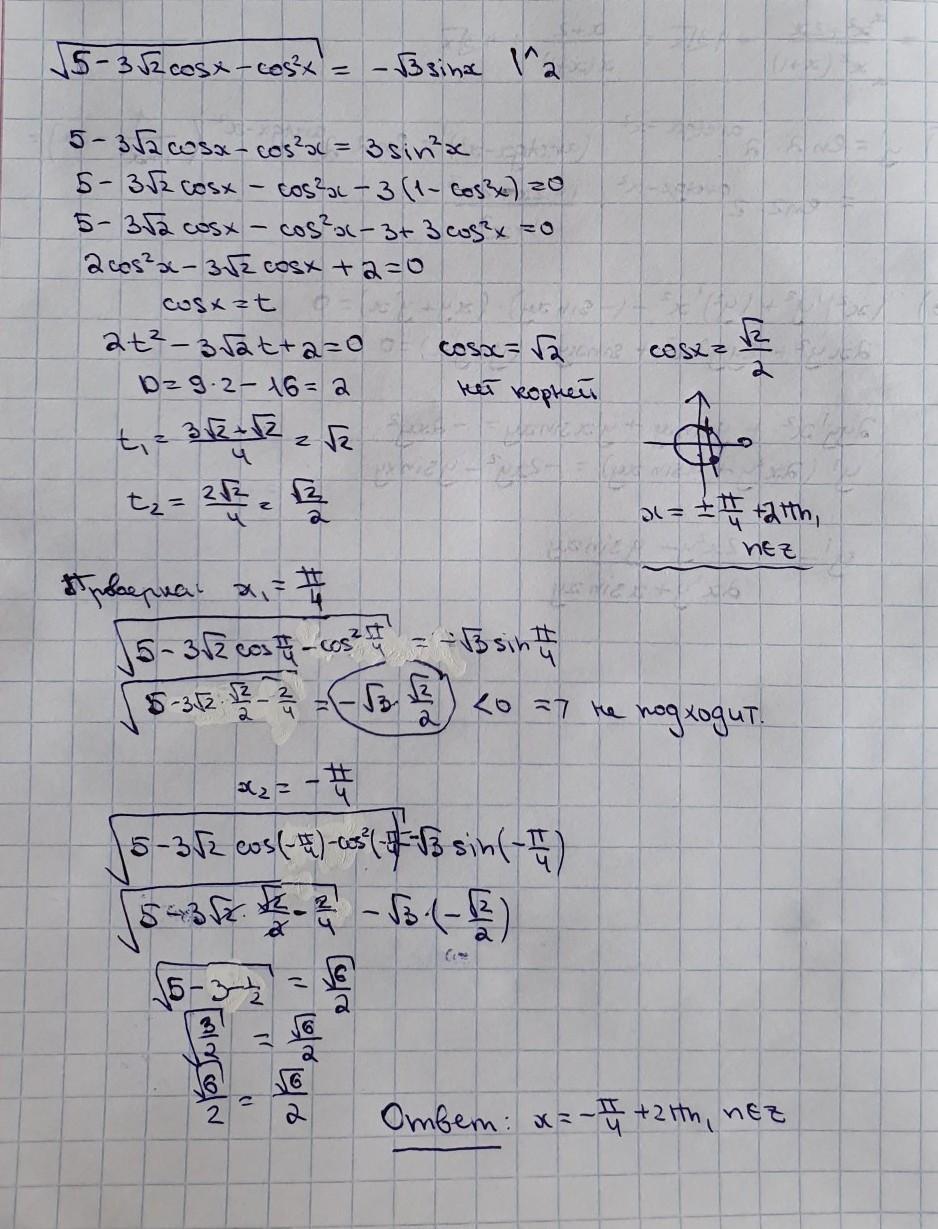 √(5 - 3√2 cosx - cos²x) = -√3 sinx |^2
5 - 3√2 cosx - cos²x = 3 sin²x
5 - 3√2 cosx - cos²x - 3(1 - cos²x) = 0
5 - 3√2 cosx - cos²x - 3 + 3cos²x = 0
2cos²x - 3√2 cosx + 2 = 0
cosx = t
2t² - 3√2 t + 2 = 0
D = 9·2 - 16 = 2
t₁ = (3√2 + √2)/4 = √2
t₂ = 2√2/4 = √2/2
cosx = √2
нет корней
cosx = √2/2
x = ± π/4 + 2πn,
n∈Z
Проверка: x₁ = π/4
√(5 - 3√2 cos π/4 - cos² π/4) = -√3 sin π/4
√(5 - 3√2 · √2/2 - 2/4) = -√3 · √2/2 < 0 => не подходит.
x₂ = -π/4
√(5 - 3√2 cos(-π/4) - cos²(-π/4)) = -√3 sin(-π/4)
√(5 - 3√2 · √2/2 - 2/4) - √3 · (-√2/2)
√(5 - 3 - 1/2) = √6/2
√(3/2) = √6/2
√6/2 = √6/2
Ответ: x = -π/4 + 2πn, n∈Z